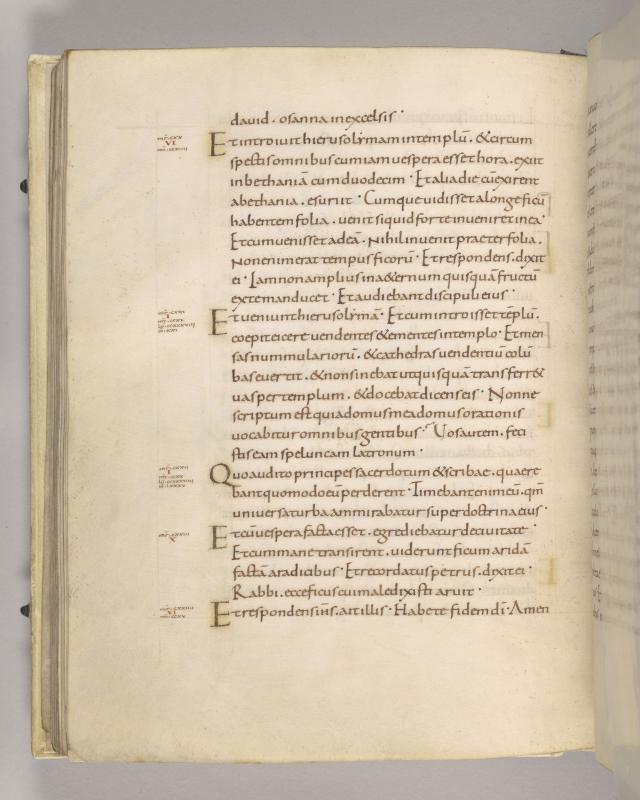 david. osanna in excelsis.
Et introiuit hierusolymam in templū. & circum
spectis omnibus cum iam uespera esset hora. exiit
in bethaniā cum duodecim. Et alia die cū exirent
a bethania. esuriit. Cumque uidisset a longe ficū
habentem folia. uenit si quid forte inueniret in ea.
Et cum uenisset ad eā. nihil inuenit praeter folia.
Non enim erat tempus ficorū. Et respondens. dixit
ei. Iam non amplius in a&ernum quisquā fructū
ex te manducet. Et audiebant discipuli eius.
Et ueniunt hierusolymā. Et cum introisset tēplū.
coepit eicere uendentes & ementes in templo. Et men
sas nummulariorū. & cathedras uendentiū colū
bas euertit. & non sinebat ut quisquā transferr&
uas per templum. & docebat dicens eis. Nonne
scriptum est quia domus mea domus orationis
uocabitur omnibus gentibus. Uos autem. feci
stis eam speluncam latronum.
Quo audito principes sacerdotum & scribae. quaere
bant quomodo eū perderent. Timebant enim eū. qm̄
uniuersa turba ammirabatur super doctrina eius.
Et cū uespera facta esset. egrediebatur de ciuitate.
Et cum mane transirent. uiderunt ficum aridā
factā a radicibus. Et recordatus petrus. dixit ei.
Rabbi. ecce ficus cui maledixisti aruit.
Et respondens ih̄s. ait illis. Habete fidem dī. Amen